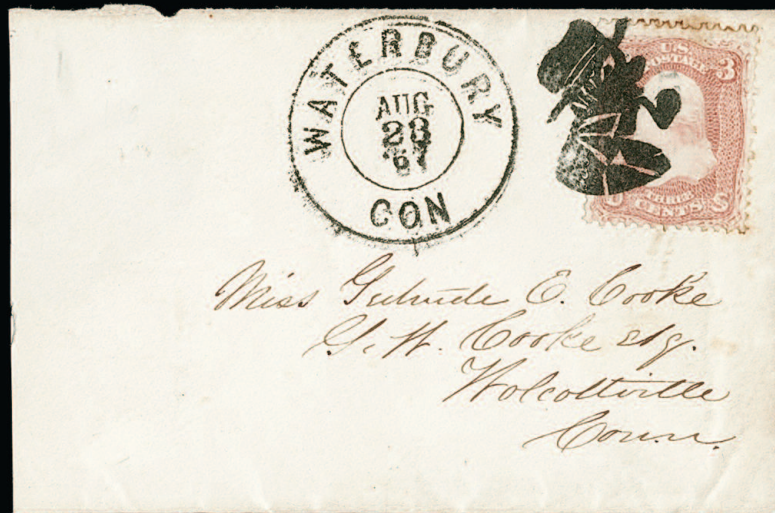 WATERBURY
AUG
28
'67
CON
U.S.
POSTAGE
3
THREE
CENTS
Miss Gertrude E. Cooke
G. W. Cooke Esq.
Wolcottville
Conn.